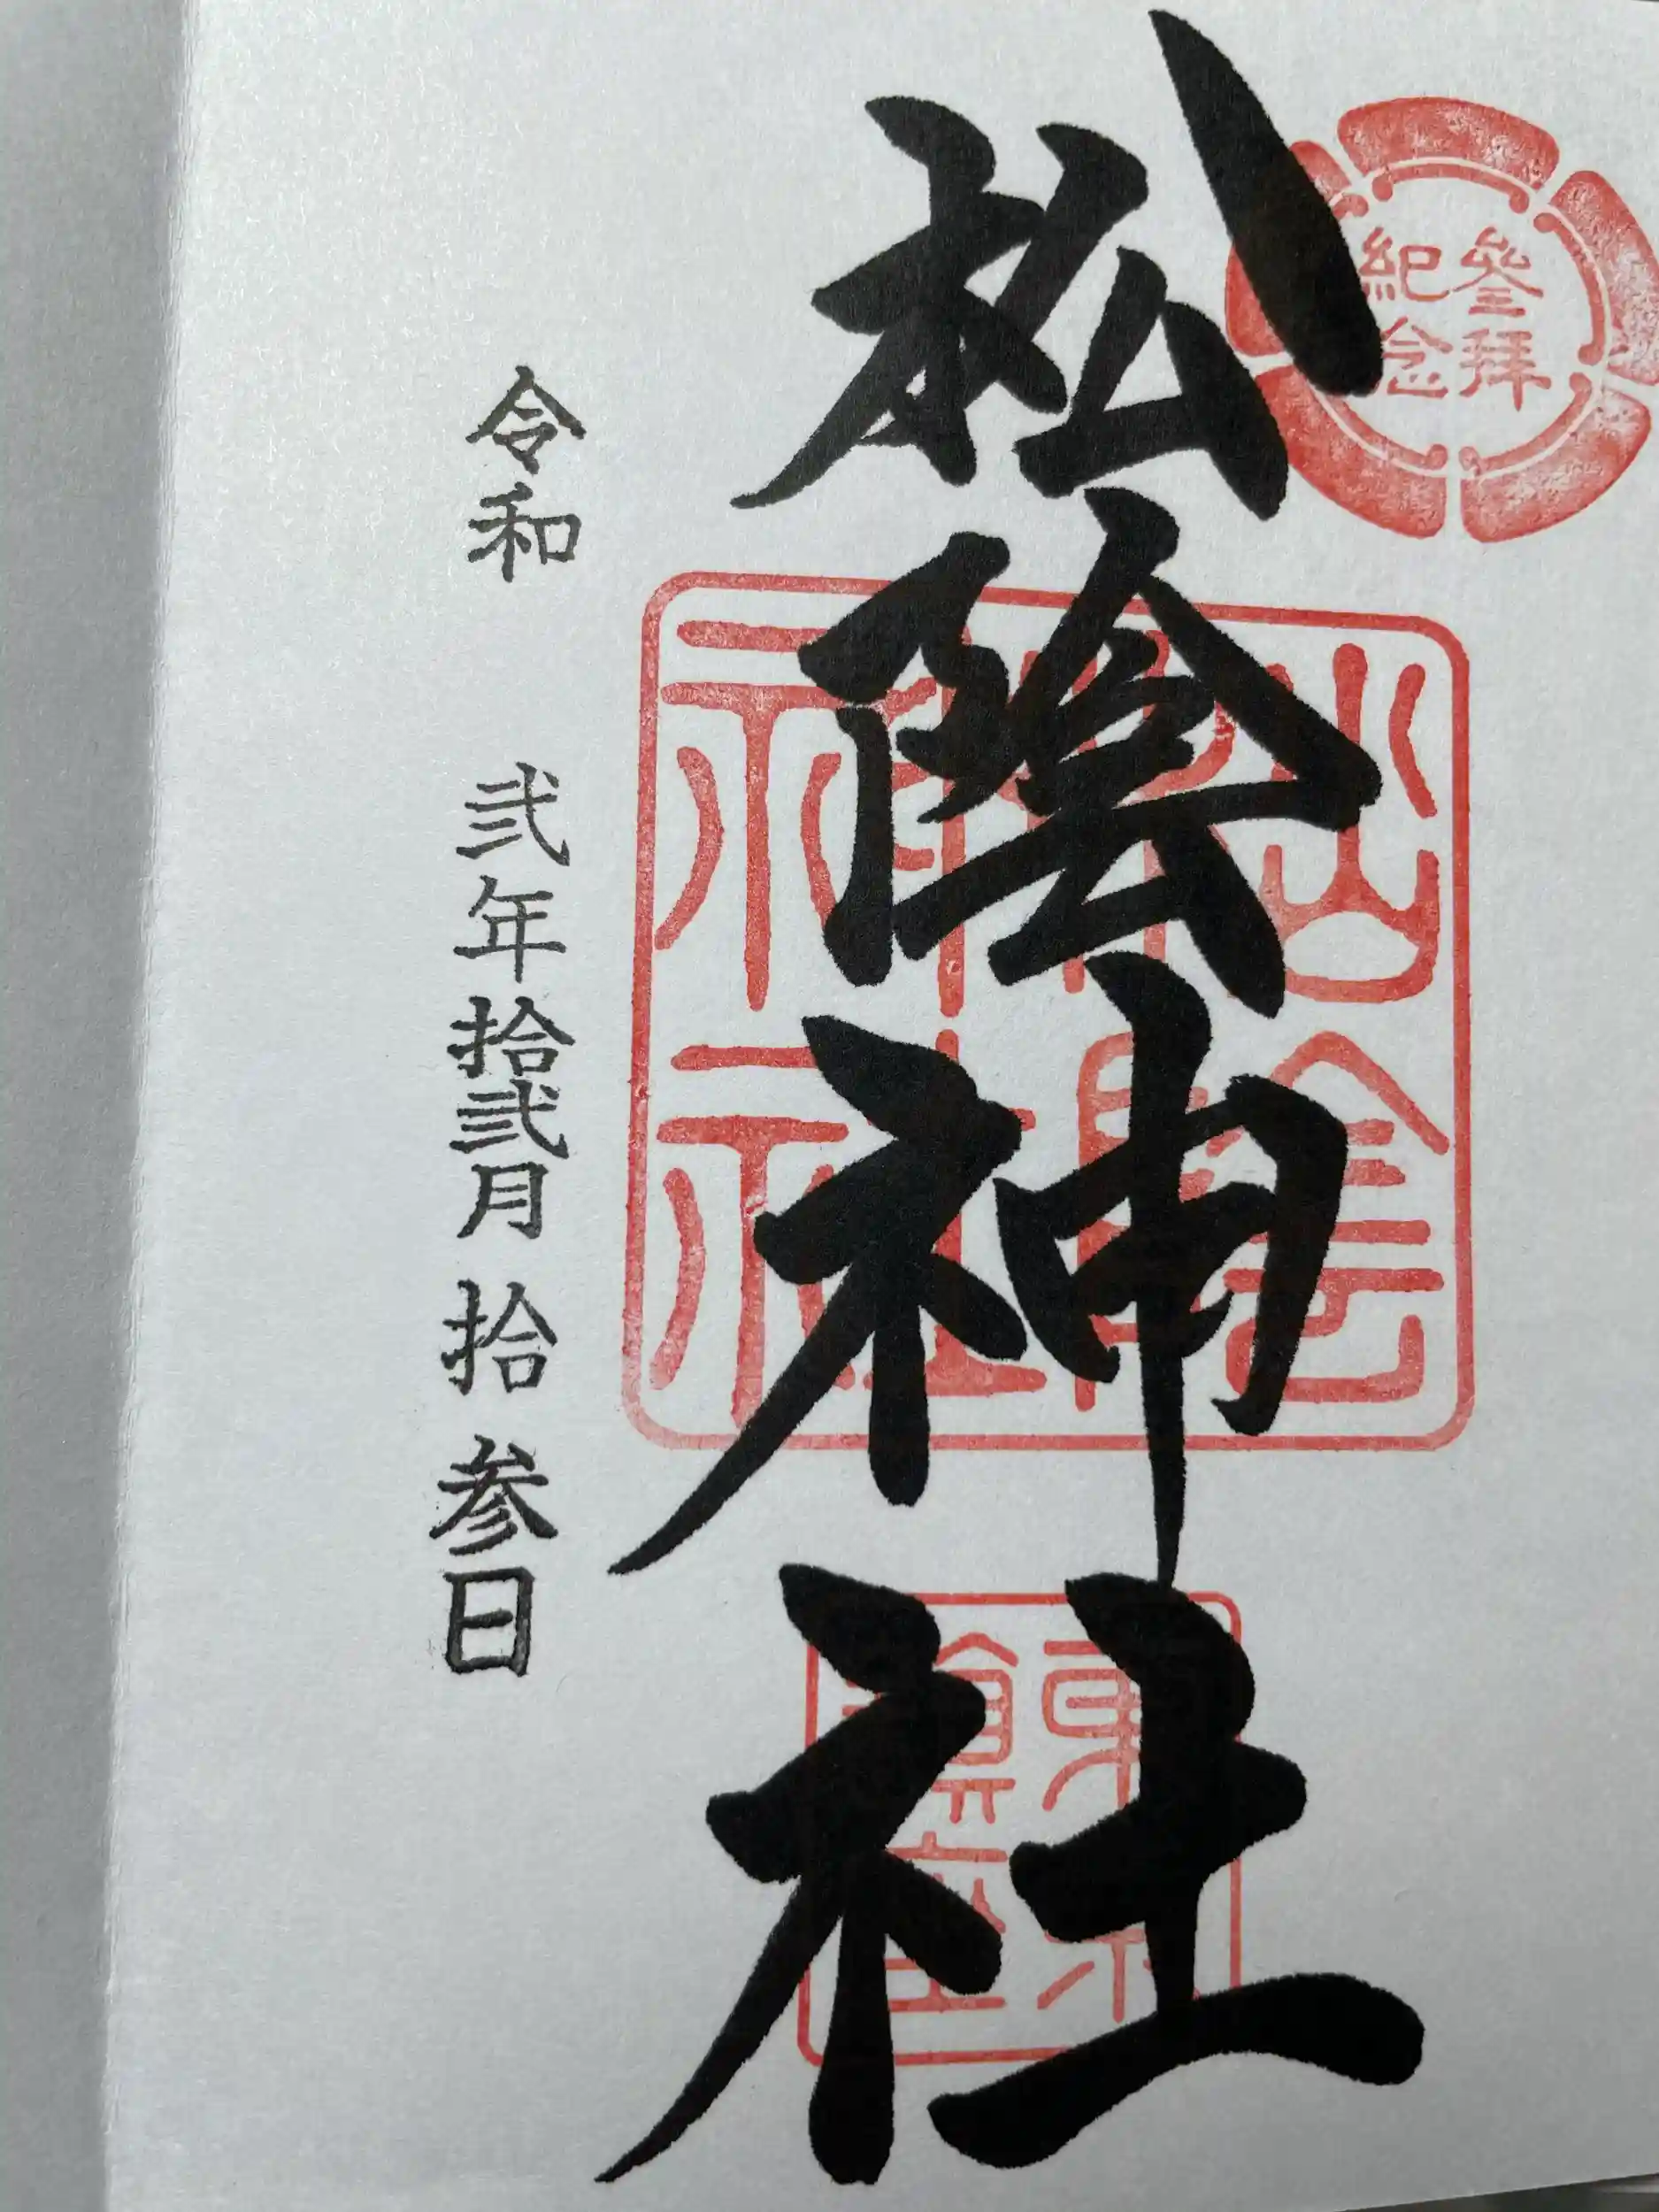 参拝
紀念
松陰神社
松陰
神社
令和 弐年拾弐月 拾 参日